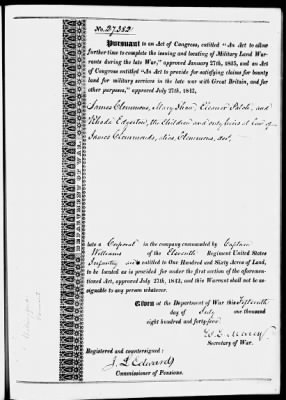 No. 27382
Pursuant to an Act of Congress, entitled "An Act to allow
further time to complete the issuing and locating of Military Land War-
rants during the late War," approved January 27th, 1835, and an Act
of Congress entitled "An Act to provide for satisfying claims for bounty
land for military services in the late war with Great Britain, and for
other purposes," approved July 27th, 1842,
James Clemmons, Mary Shaw, Eleanor Patch, and
Rhoda Edgerton, the Children and only heirs at law of
James Clemmonds, alias, Clemmons, decd.
late a Corporal in the company commanded by Captain
Williams of the Eleventh Regiment United States
Infantry are entitled to One Hundred and Sixty Acres of Land,
to be located as is provided for under the first section of the aforemen-
tioned Act, approved July 27th, 1842, and this Warrant shall not be as-
signable to any person whatever.
Given at the Department of War this Fifteenth
day of July one thousand
eight hundred and forty-five
W. L. Marcy
Secretary of War.
Registered and countersigned:
J. L. Edwards
Commissioner of Pensions.
DEPARTMENT OF WAR